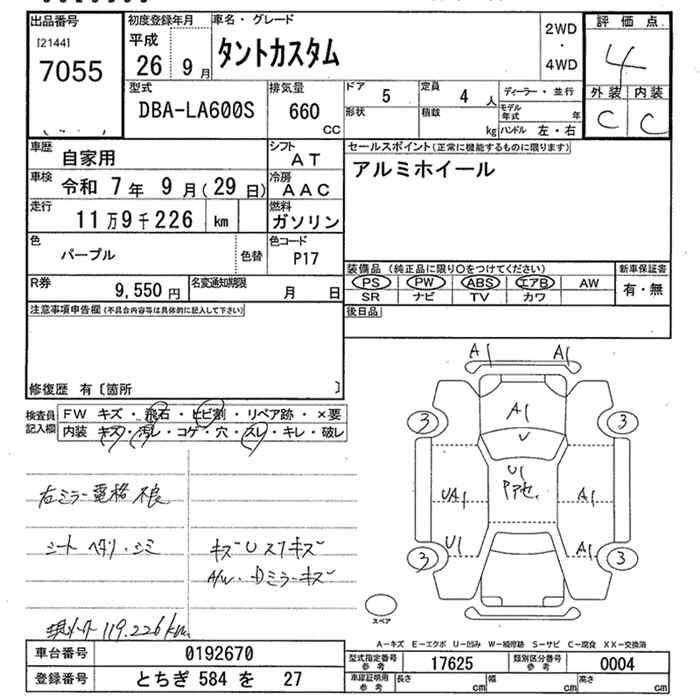 出品番号
[2144]
7055
初度登録年月
平成
26 9月
車名・グレード
タントカスタム
2WD
・
4WD
評価点
4
外装 内装
C C
型式
DBA-LA600S
排気量
660
CC
ドア
5
定員
4 人
形状
積載
kg
ディーラー・並行
モデル
年式 年
ハンドル 左・右
車歴
自家用
シフト
AT
車検
令和 7年 9月(29日)
冷房
AAC
走行
11万9千226 km
燃料
ガソリン
色
パープル
色替
色コード
P17
R券
9,550円
名変通知期限
月 日
セールスポイント(正常に機能するものに限ります)
アルミホイール
装備品 (純正品に限り○をつけてください)
PS PW ABS エアB AW
SR ナビ TV カワ
新車保証書
有・無
後日品
注意事項申告欄(不具合内容等は具体的に記入して下さい)
修復歴 有〔箇所 〕
検査員
記入欄
FW キズ・飛石・ヒビ割・リペア跡・×要
内装 キズ・汚レ・コゲ・穴・スレ・キレ・破レ
右ミラー電格不良
シート ヘタリ・シミ
キズUスリキズ
A/W・Dミラーキズ
現メーター119.226km
A1 A1
A1
3 3
U
U1
Pアせ.
UA1 A1
U1 A1
3 3
スペア
A-キズ E-エクボ U-凹み W-補修跡 S-サビ C-腐食 XX-交換済
車台番号
0192670
登録番号
とちぎ 584 を 27
型式指定番号
参考
17625
類別区分番号
参考
0004
車庫証明用
参考
長さ cm
幅 cm
高さ cm